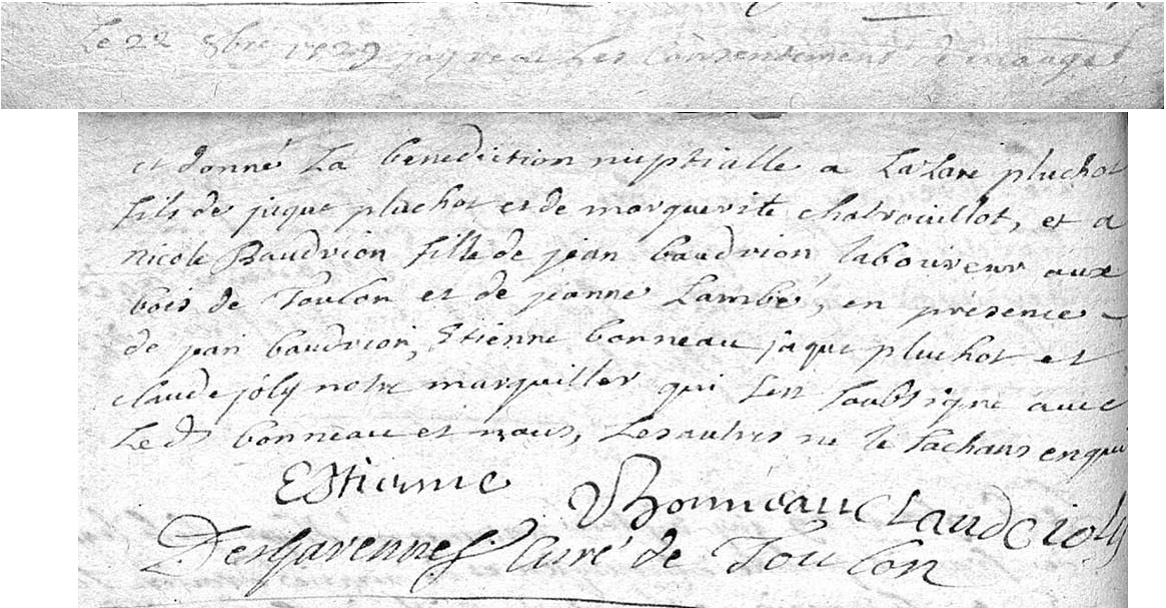 Le 22 8bre 1729 jay receu les consentement de mariage
et donné La benediction nuptialle a Lazare pluchot
fils de jaque pluchot et de marguerite chatrouillot, et a
nicole Baudrion fille de jean baudrion laboureur aux
bois de Toulon et de jeanne Lambé, en présence
de jean baudrion, Etienne bonneau jaque pluchot et
claude joly notre marguiller qui sest soubsigne avec
Le dt bonneau et nous, les autres ne le sachans enquis
Estienne Bonneau Claude ioly
Desgarennes Curé de Toulon